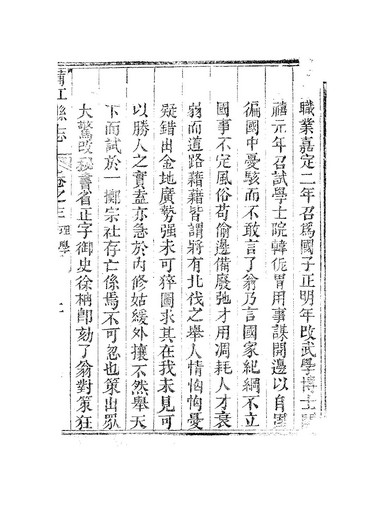 職業嘉定二年召爲國子正明年改武學博士開
禧元年召試學士院韓侂胄用事謀開邊以自固
徧國中憂駭而不敢言了翁乃言國家紀綱不立
國事不定風俗苟偷邊備廢弛才用凋耗人才衰
弱而道路藉藉皆謂將有北伐之舉人情恟恟憂
疑錯出金地廣勢强未可猝圖求其在我未見可
以勝人之實蓋亦急於內修姑緩外攘不然舉天
下而試於一擲宗社存亡係焉不可忽也策出眾
大驚改秘書省正字御史徐柟卽劾了翁對策狂
蒲江縣志 卷之三 理學